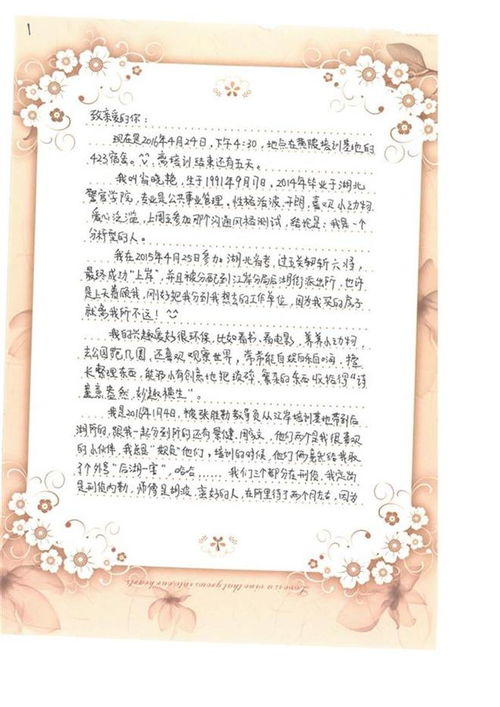 1
致亲爱的你：
现在是2016年4月24日，下午4:30，地点在蔡甸培训基地的
423宿舍。离培训结束还有五天。
我叫翁晓艳，生于1991年9月17日，2014年毕业于湖北
警官学院，专业是公共事业管理。性格活泼、开朗，喜欢小动物，
爱心泛滥，上周五参加那个沟通风格测试，结论是：我是一个
分析型的人。
我在2015年4月25日参加湖北省考，过五关斩六将，
最终成功“上岸”，并且被分配到江岸分局后湖街派出所，也许
是上天眷顾我，刚好把我分到我想去的工作单位，因为我买的房子
就离我所不远！
我的兴趣爱好很环保，比如看书、看电影，养养小动物，
去公园跑几圈，还喜欢观察世界，常常能自娱自乐自嗨，擅
长整理东西，能那小有创意地把琐碎、繁杂的东西收拾得“诗
意盎然，妙趣横生”。
我是2016年1月4日，被张胜勤教导员从江岸培训基地带到后
湖所的，跟我一起分到所的还有景健、周文，他们两个是我很喜欢
的小伙伴，我总是“奴役”他们，培训的时候，他们俩竟然给我取
了个外号“后湖一害”，哈哈…… 我们三个都分在刑侦，我定岗
是刑侦内勤，师傅是胡凌，蛮好的人，在所里待了两个月左右，因为
Love is a vine that grows into our hearts